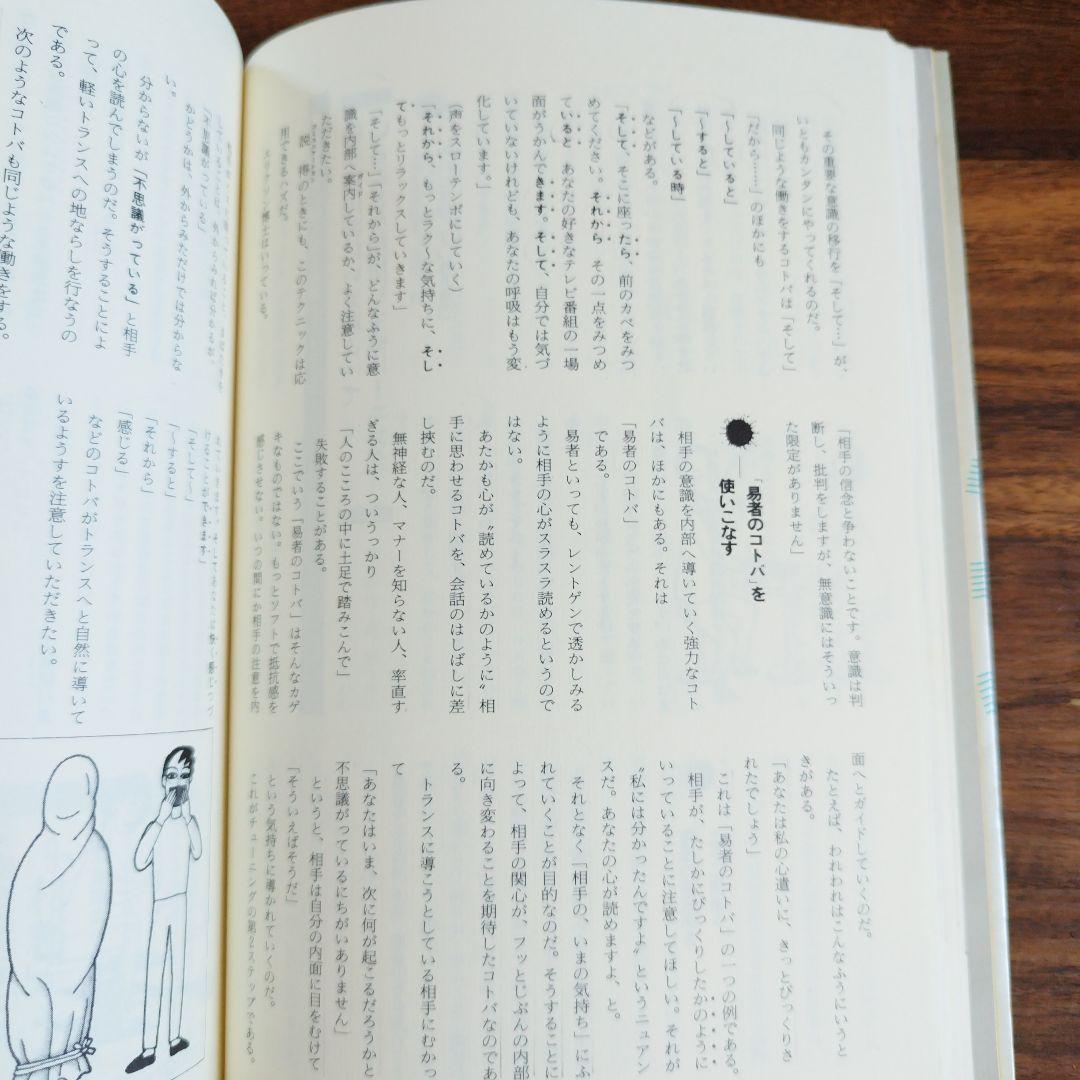 その重要な意識の移行を「そして…」が、
いともカンタンにやってくれるのだ。
同じような働きをするコトバは「そして」
「だから……」のほかにも
「〜していると」
「〜すると」
「〜している時」
などがある。
「そして、そこに座ったら、前のカベをみつ
めてください。それから その一点をみつめ
ていると あなたの好きなテレビ番組の一場
面がうかんできます。そして、自分では気づ
いていないけれども、あなたの呼吸はもう変
化しています。」
(声をスローテンポにしていく)
「それから、もっとラク〜な気持ちに、そし
てもっとリラックスしていきます」
「そして…」「それから」が、どんなふうに意
識を内部へ案内しているか、よく注意してい
ただきたい。
説得のときにも、このテクニックは応
用できるハズだ。
エリクソン博士はいっている。
「相手の信念と争わないことです。意識は判
断し、批判をしますが、無意識にはそういっ
た限定がありません」
「易者のコトバ」を
使いこなす
相手の意識を内部へ導いていく強力なコト
バは、ほかにもある。それは
「易者のコトバ」
である。
易者といっても、レントゲンで透かしみる
ように相手の心がスラスラ読めるというので
はない。
あたかも心が〝読めているかのように〟相
手に思わせるコトバを、会話のはしばしに差
し挟むのだ。
無神経な人、マナーを知らない人、率直す
ぎる人は、ついうっかり
「人のこころの中に土足で踏みこんで」
失敗することがある。
ここでいう「易者のコトバ」はそんなカゲ
キなものではない。もっとソフトで抵抗感を
感じさせない。いつの間にか相手の注意を内
面へとガイドしていくのだ。
たとえば、われわれはこんなふうにいうと
きがある。
「あなたは私の心遣いに、きっとびっくりさ
れたでしょう」
これは「易者のコトバ」の一つの例である。
相手が、たしかにびっくりしたかのように
いっていることに注意してほしい。それが
〝私には分かったんですよ〟というニュアン
スだ。あなたの心が読めますよ、と。
それとなく「相手の、いまの気持ち」にふ
れていくことが目的なのだ。そうすることに
よって、相手の関心が、フッとじぶんの内部
に向き変わることを期待したコトバなのであ
る。
トランスに導こうとしている相手にむかっ
て
「あなたはいま、次に何が起こるだろうかと
不思議がっているにちがいありません」
というと、相手は自分の内面に目をむけて
「そういえばそうだ」
という気持ちに導かれていくのだ。
これがチューニングの第2ステップである。
「不思議がっている」
かどうかは、外からみただけでは分からな
い。
分からないが「不思議がっている」と相手
の心を読んでしまうのだ。そうすることによ
って、軽いトランスへの地ならしを行なうの
である。
次のようなコトバも同じような働きをする。
けることができます」
「そして〜」
「〜すると」
「それから」
「感じる」
などのコトバがトランスへと自然に導いて
いるようすを注意していただきたい。